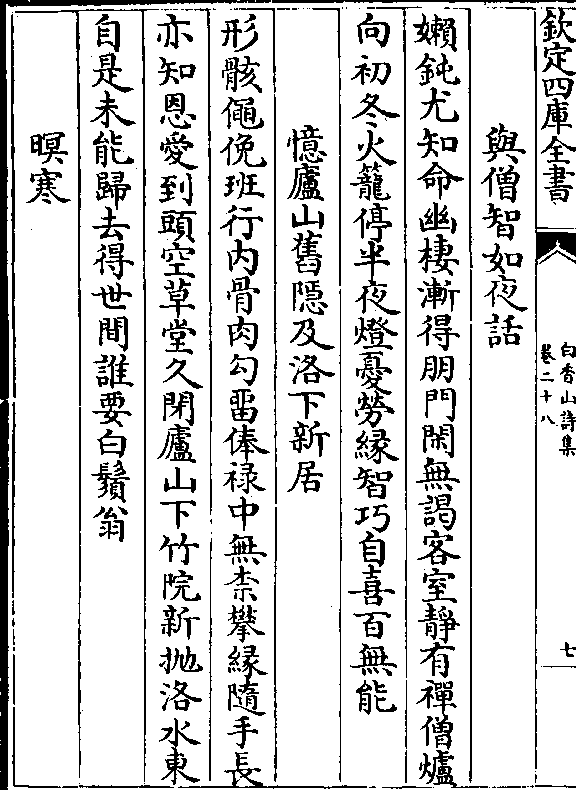 欽定四庫全書
白香山詩集
卷二十八
七
與僧智如夜話
嬾鈍尤知命幽棲漸得朋門閑無謁客室靜有禪僧爐
向初冬火籠停半夜燈憂勞縁智巧自喜百無能
憶廬山舊隱及洛下新居
形骸僶俛班行內骨肉勾留俸禄中無柰攀縁隨手長
亦知恩愛到頭空草堂久閉廬山下竹院新抛洛水東
自是未能歸去得世間誰要白鬚翁
暝寒